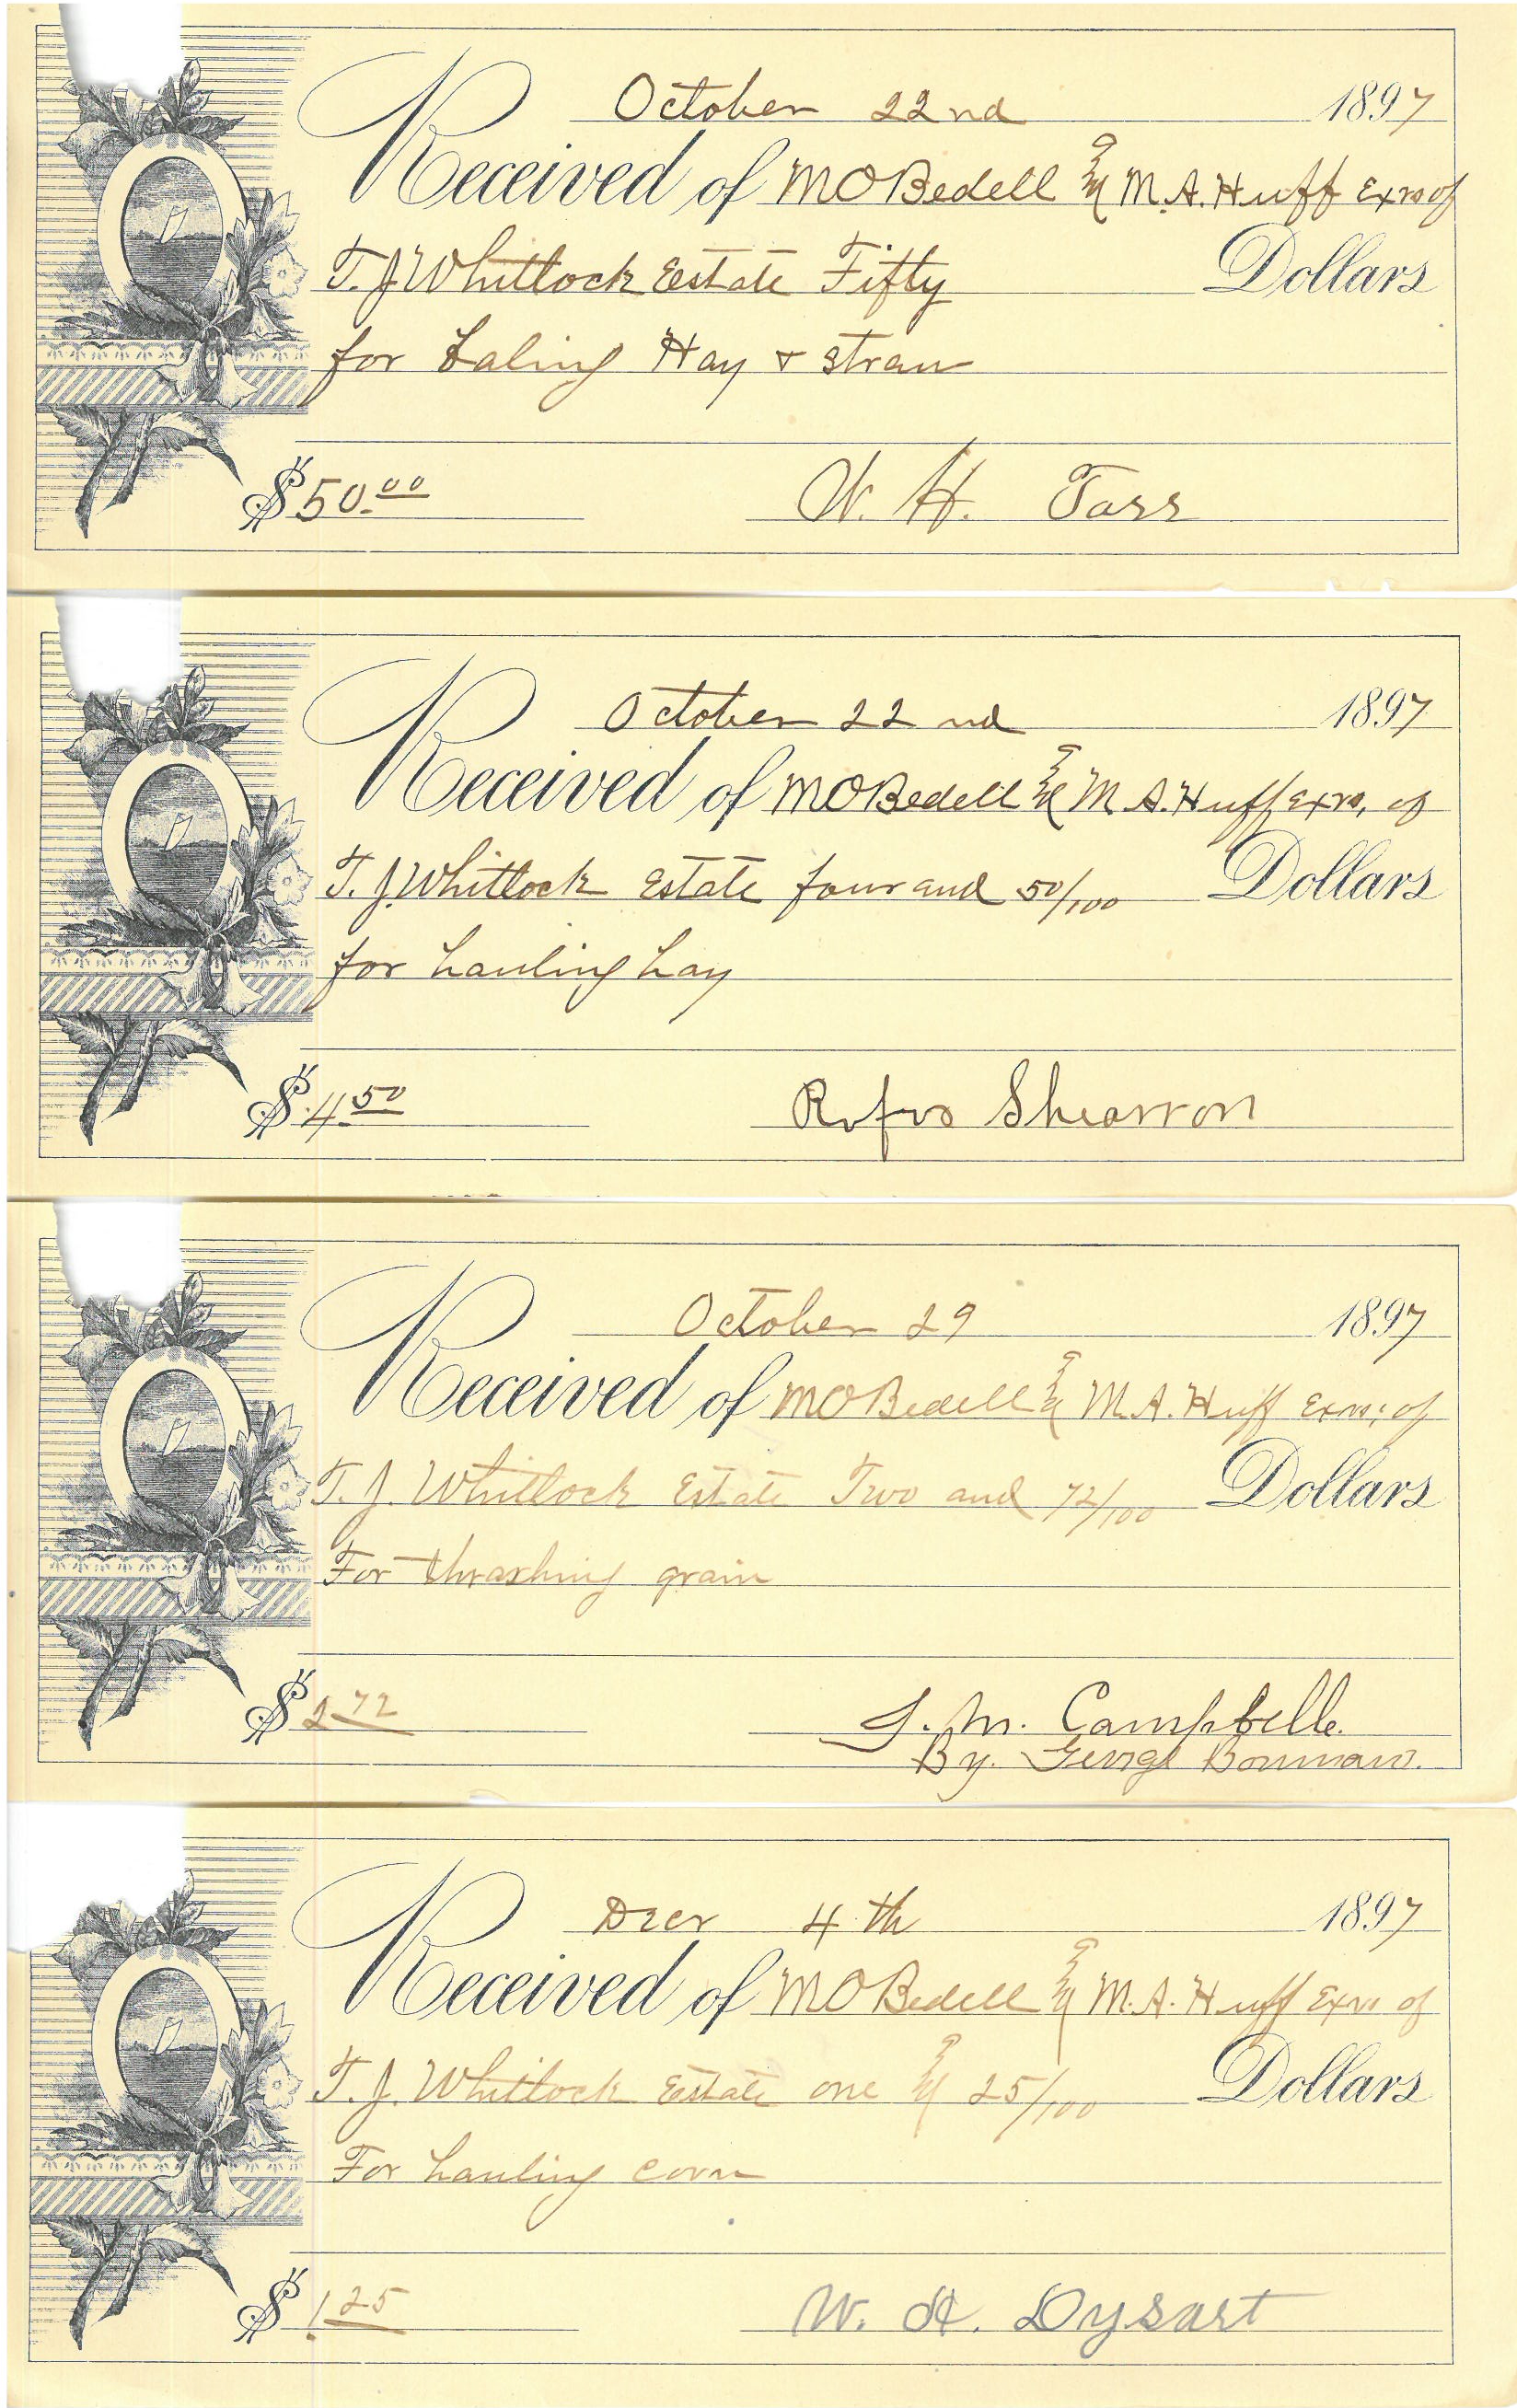 October 22nd 1897
Received of M O Bedell & M. A. Huff Exrs of
T. J. Whitlock Estate Fifty Dollars
for baling Hay & straw
$50.00 W. H. Tarr
October 22nd 1897
Received of M O Bedell & M A. Huff Exrs, of
T. J. Whitlock Estate four and 50/100 Dollars
for hauling hay
$4.50 Rufus Shearron
October 29 1897
Received of M O Bedell & M. A. Huff Exrs; of
T. J. Whitlock Estate Two and 72/100 Dollars
For thrashing grain
$2.72 Campbelle.
By. George
Decr 4th 1897
Received of M O Bedell & M. A. Huff Exrs of
T. J. Whitlock Estate one & 25/100 Dollars
For hauling corn
$1.25 W. H. Dysart